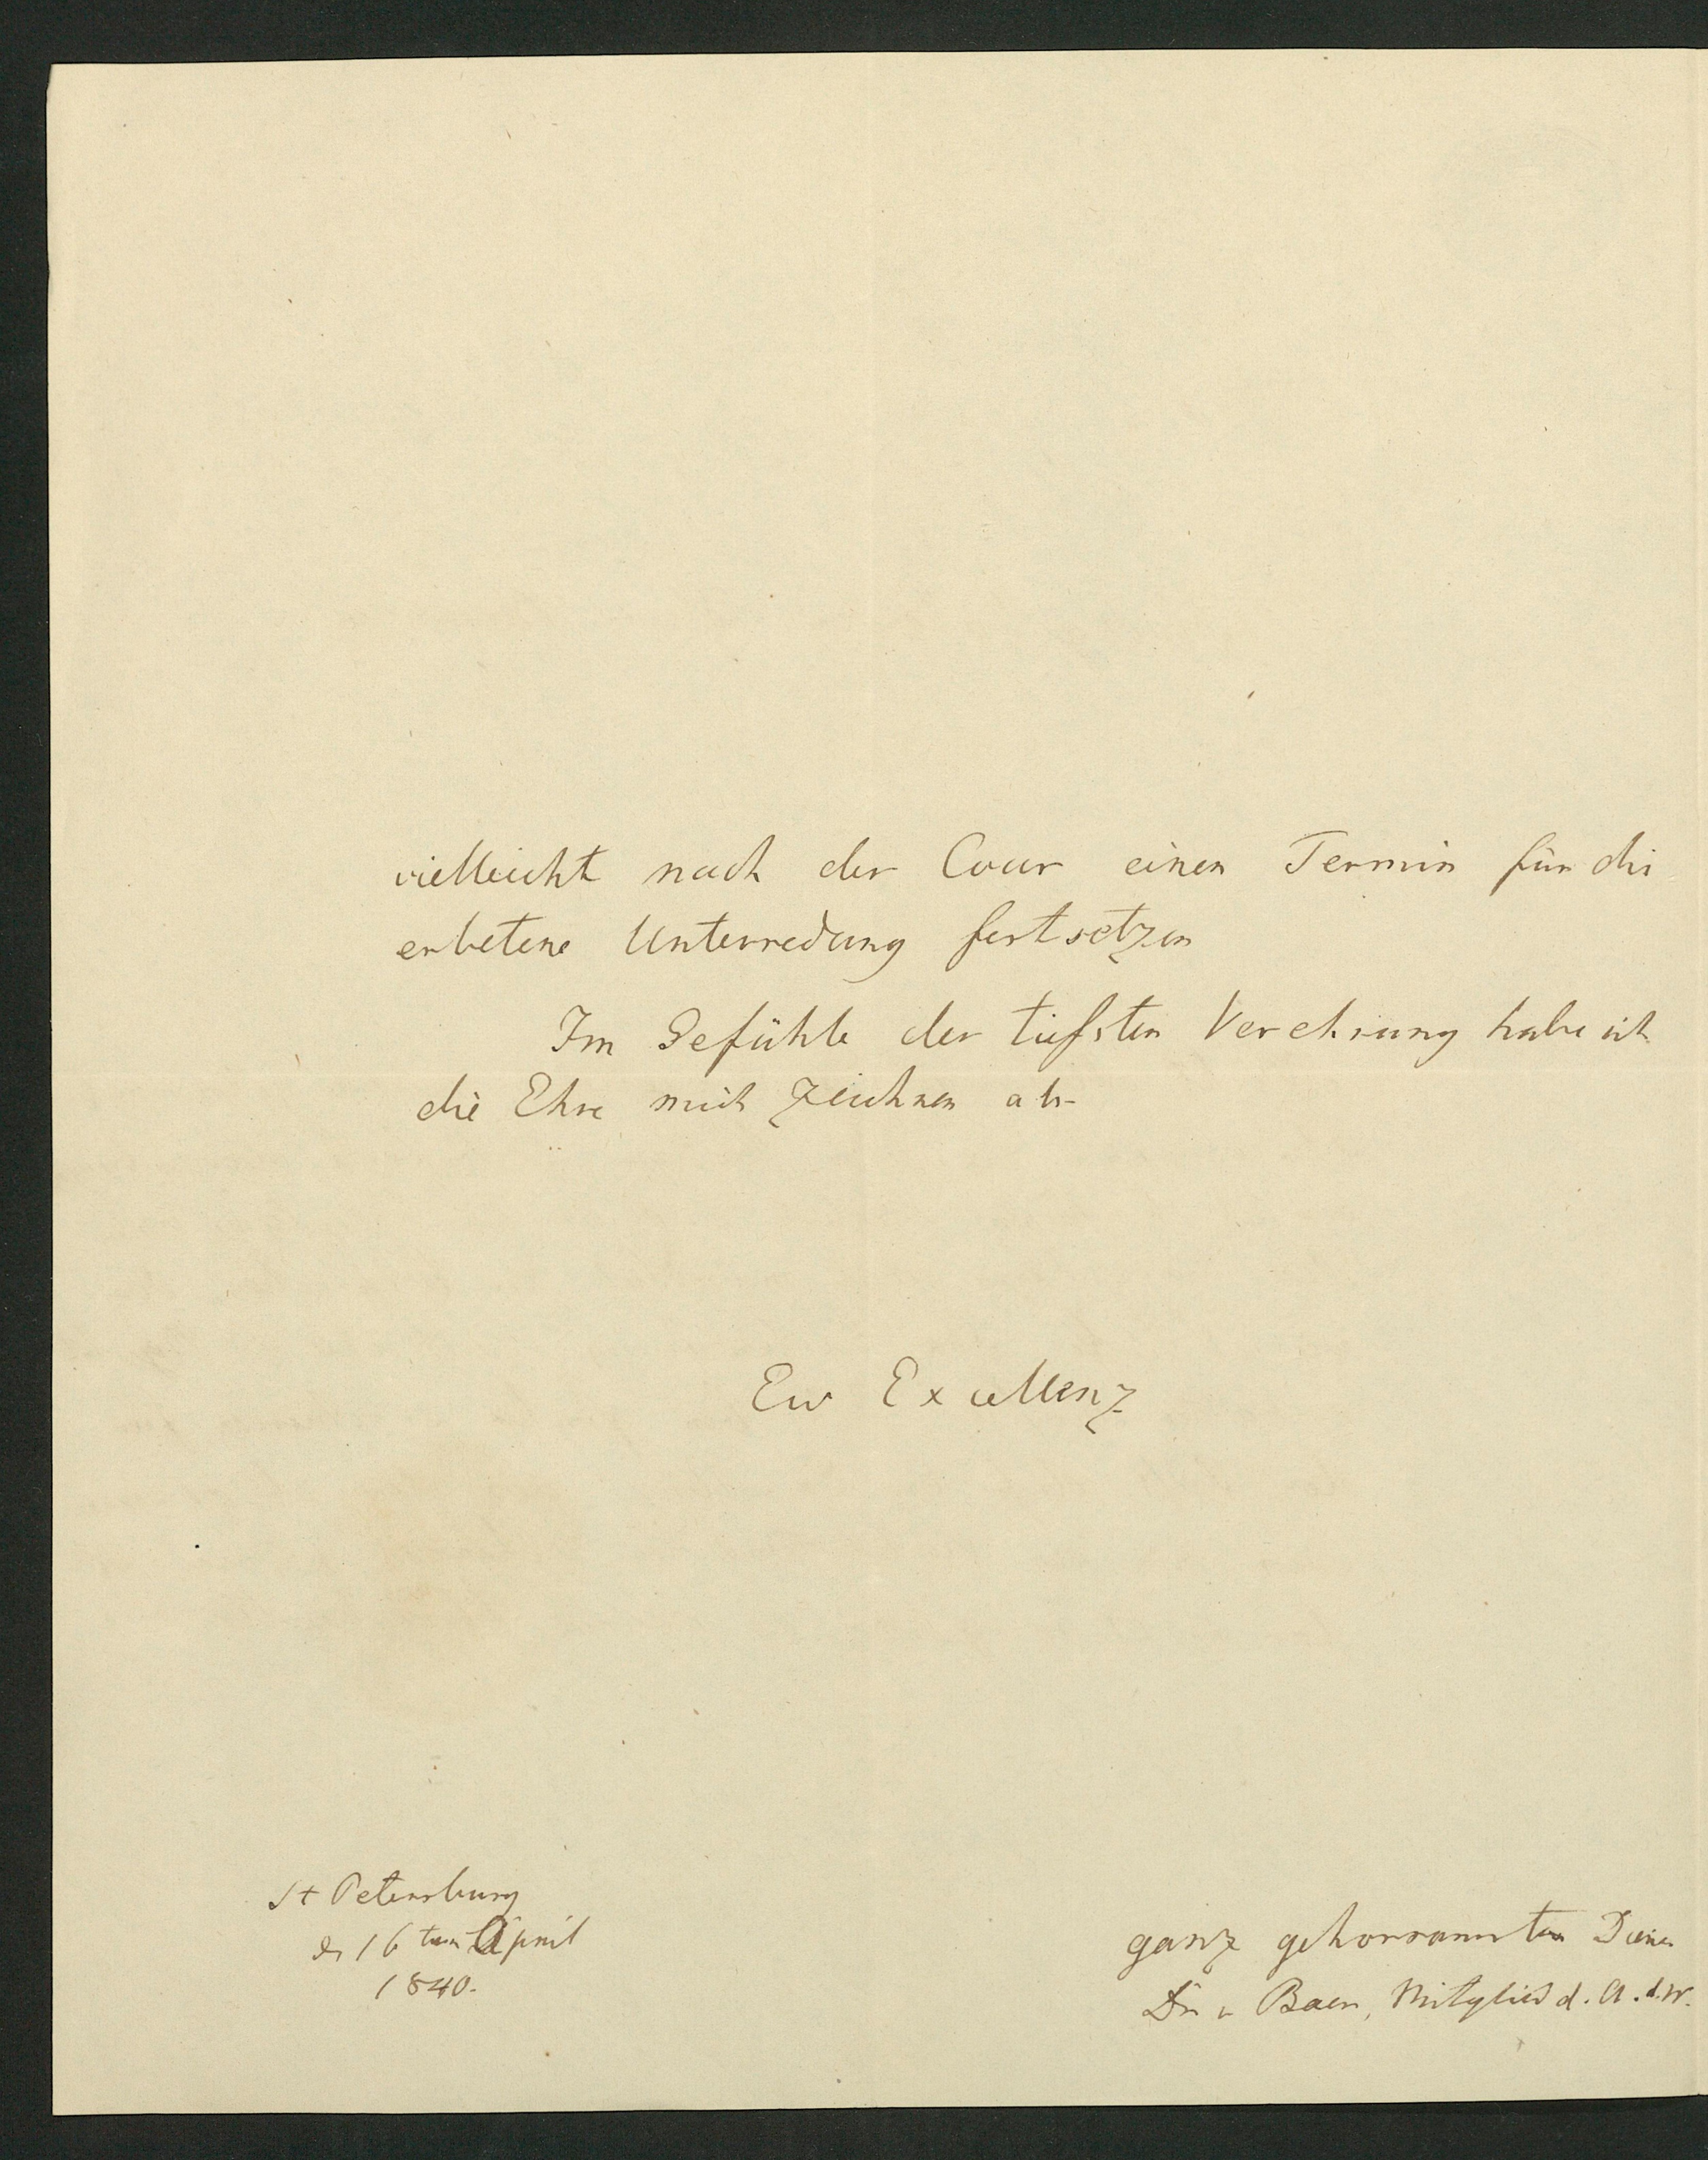 vielleicht nach der Cour einen Termin für die
erbetene Unterredung festsetzen
Im Gefühle der tiefsten Verehrung habe ich
die Ehre mich zeichnen als
Ew Excellenz
St Petersburg
d 16ten April
1840.
ganz gehorsamsten Diener
Dr v Baer, Mitglied d. A. d. W.